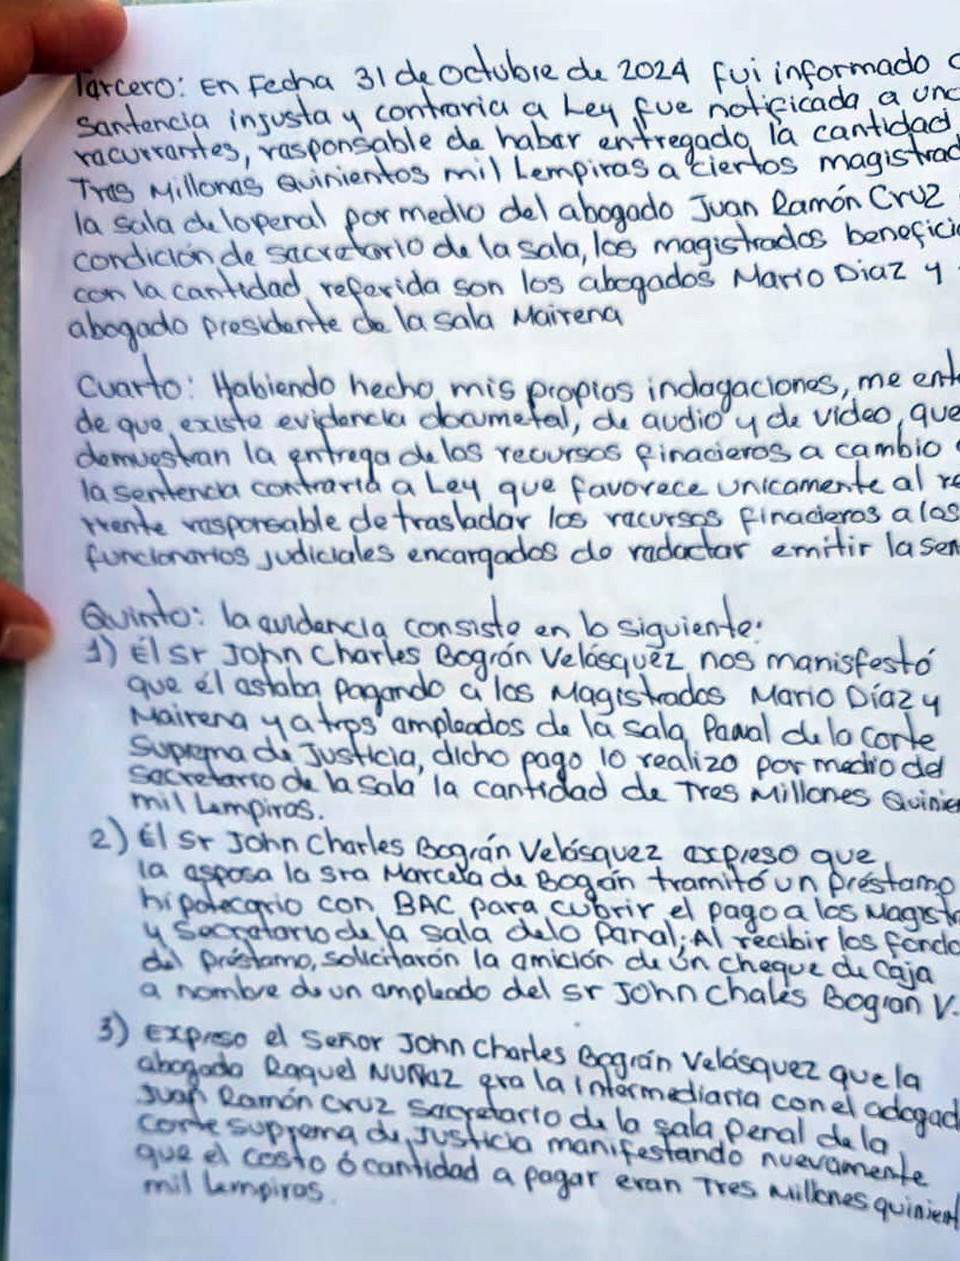 Tercero: En Fecha 31 de octubre de 2024 fui informado
Santencia injusta y contraria a Ley fue notificada a
racurrantes, rasponsable de habar entregado la cantidad
Tres Millones Quinientos mil Lempiras a ciertos magistrad
la sala de lo penal por medio del abogado Juan Ramón Cruz
condición de sacretario de la sala, los magistrados benefici
con la cantidad referida son los abogados Mario Diaz y
abogado presidente de la sala Mairena
Cuarto: Habiendo hecho mis propios indagaciones, me ent
de que existe evidencia documetal, de audio y de video, que
demuestran la entrega de los recursos finacieros a cambio
la sentencia contraria a Ley que favorece unicamente al re
rrente rasponsable de trasladar los racursos finacieros a los
funcionarios judiciales encargados de radactar emitir la sen
Quinto: la evidencia consiste en lo siguiente:
1) El sr John Charles Bográn Velásquez nos manisfestó
que él astaba pagando a los Magistrados Mario Díaz y
Mairena y a tres ampleados de la sala Panal de la corte
Suprema de Justicia, dicho pago lo realizo por medio del
sacretario de la sala la cantidad de Tres Millones Quinie
mil Lempiras.
2) El Sr John Charles Bográn Velásquez expreso que
la asposa la sra Marcela de Bogán tramitó un préstamo
hipotecario con BAC para cubrir el pago a los Magistr
y Secretario de la sala de lo Panal; Al recibir los fondo
del préstamo, solicitarón la amición de un cheque de Caja
a nombre de un ampleado del sr John Chales Bogran V.
3) Expreso el Señor John Charles Bográn Velásquez que la
abogado Raquel Nuñaz era la intermediaria con el adogad
Juan Ramón Cruz Sacretario de la sala penal de la
corte suprema de Justicia manifestando nuevamente
que el costo ó cantidad a pagar eran Tres Millones quinient
mil Lempiras.